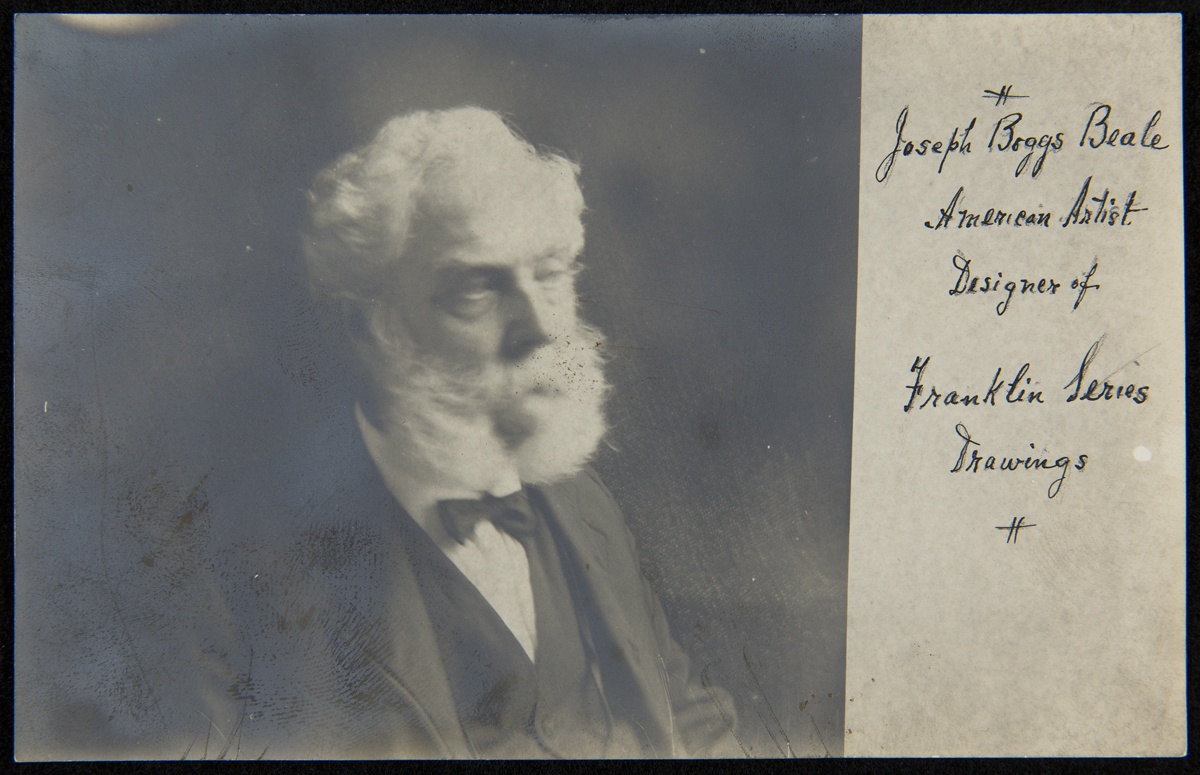 Joseph Boggs Beale
American Artist
Designer of
Franklin Series
Drawings